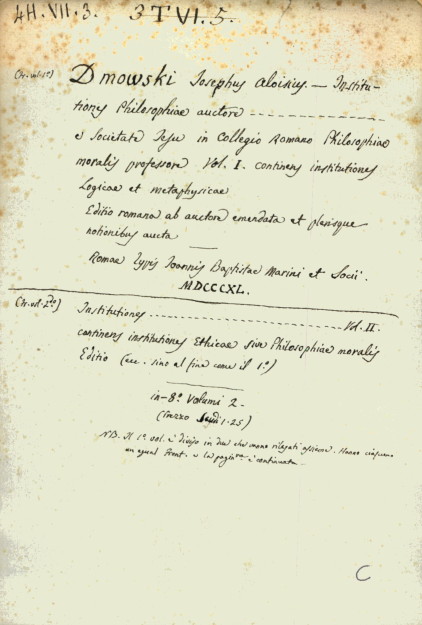 4H.VII.3. 3TVI.5.
(Fr. vol. 1º) Dmowski Josephus Aloisius. — Institu-
tiones Philosophiae auctore ----------------
e Societate Jesu in Collegio Romano Philosophiae
moralis professore Vol. I. continens institutiones
Logicae et metaphysicae
Editio romana ab auctore emendata et plerisque
notionibus aucta
Romae typis Joannis Baptistae Marini et Socii.
MDCCCXL.
(Fr. vol. 2do) Institutiones -------------------- Vol. II.
continens institutiones Ethicae sive Philosophiae moralis
Editio (ec. sino al fine come il 1º)
in-8º Volumi 2.
(Prezzo Scudi 1-25)
NB. Il 1º vol. è diviso in due che vanno rilegati assieme. Hanno ciascuno
un egual front. e la pagin.ne è continuata.
C